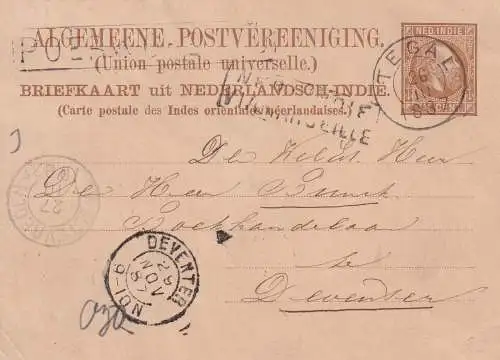 ALGEMEENE POSTVEREENIGING.
(Union postale universelle.)
BRIEFKAART uit NEDERLANDSCH-INDIE.
(Carte postale des Indes orientales néerlandaises.)
NED-INDIE
CENT
TEGAL
26
NED. INDIE
MARSEILLE
De
De Heer Brunk
Boekhandelaar
te
Deventer
27
DEVENTER
29
NOV
87
9-10N